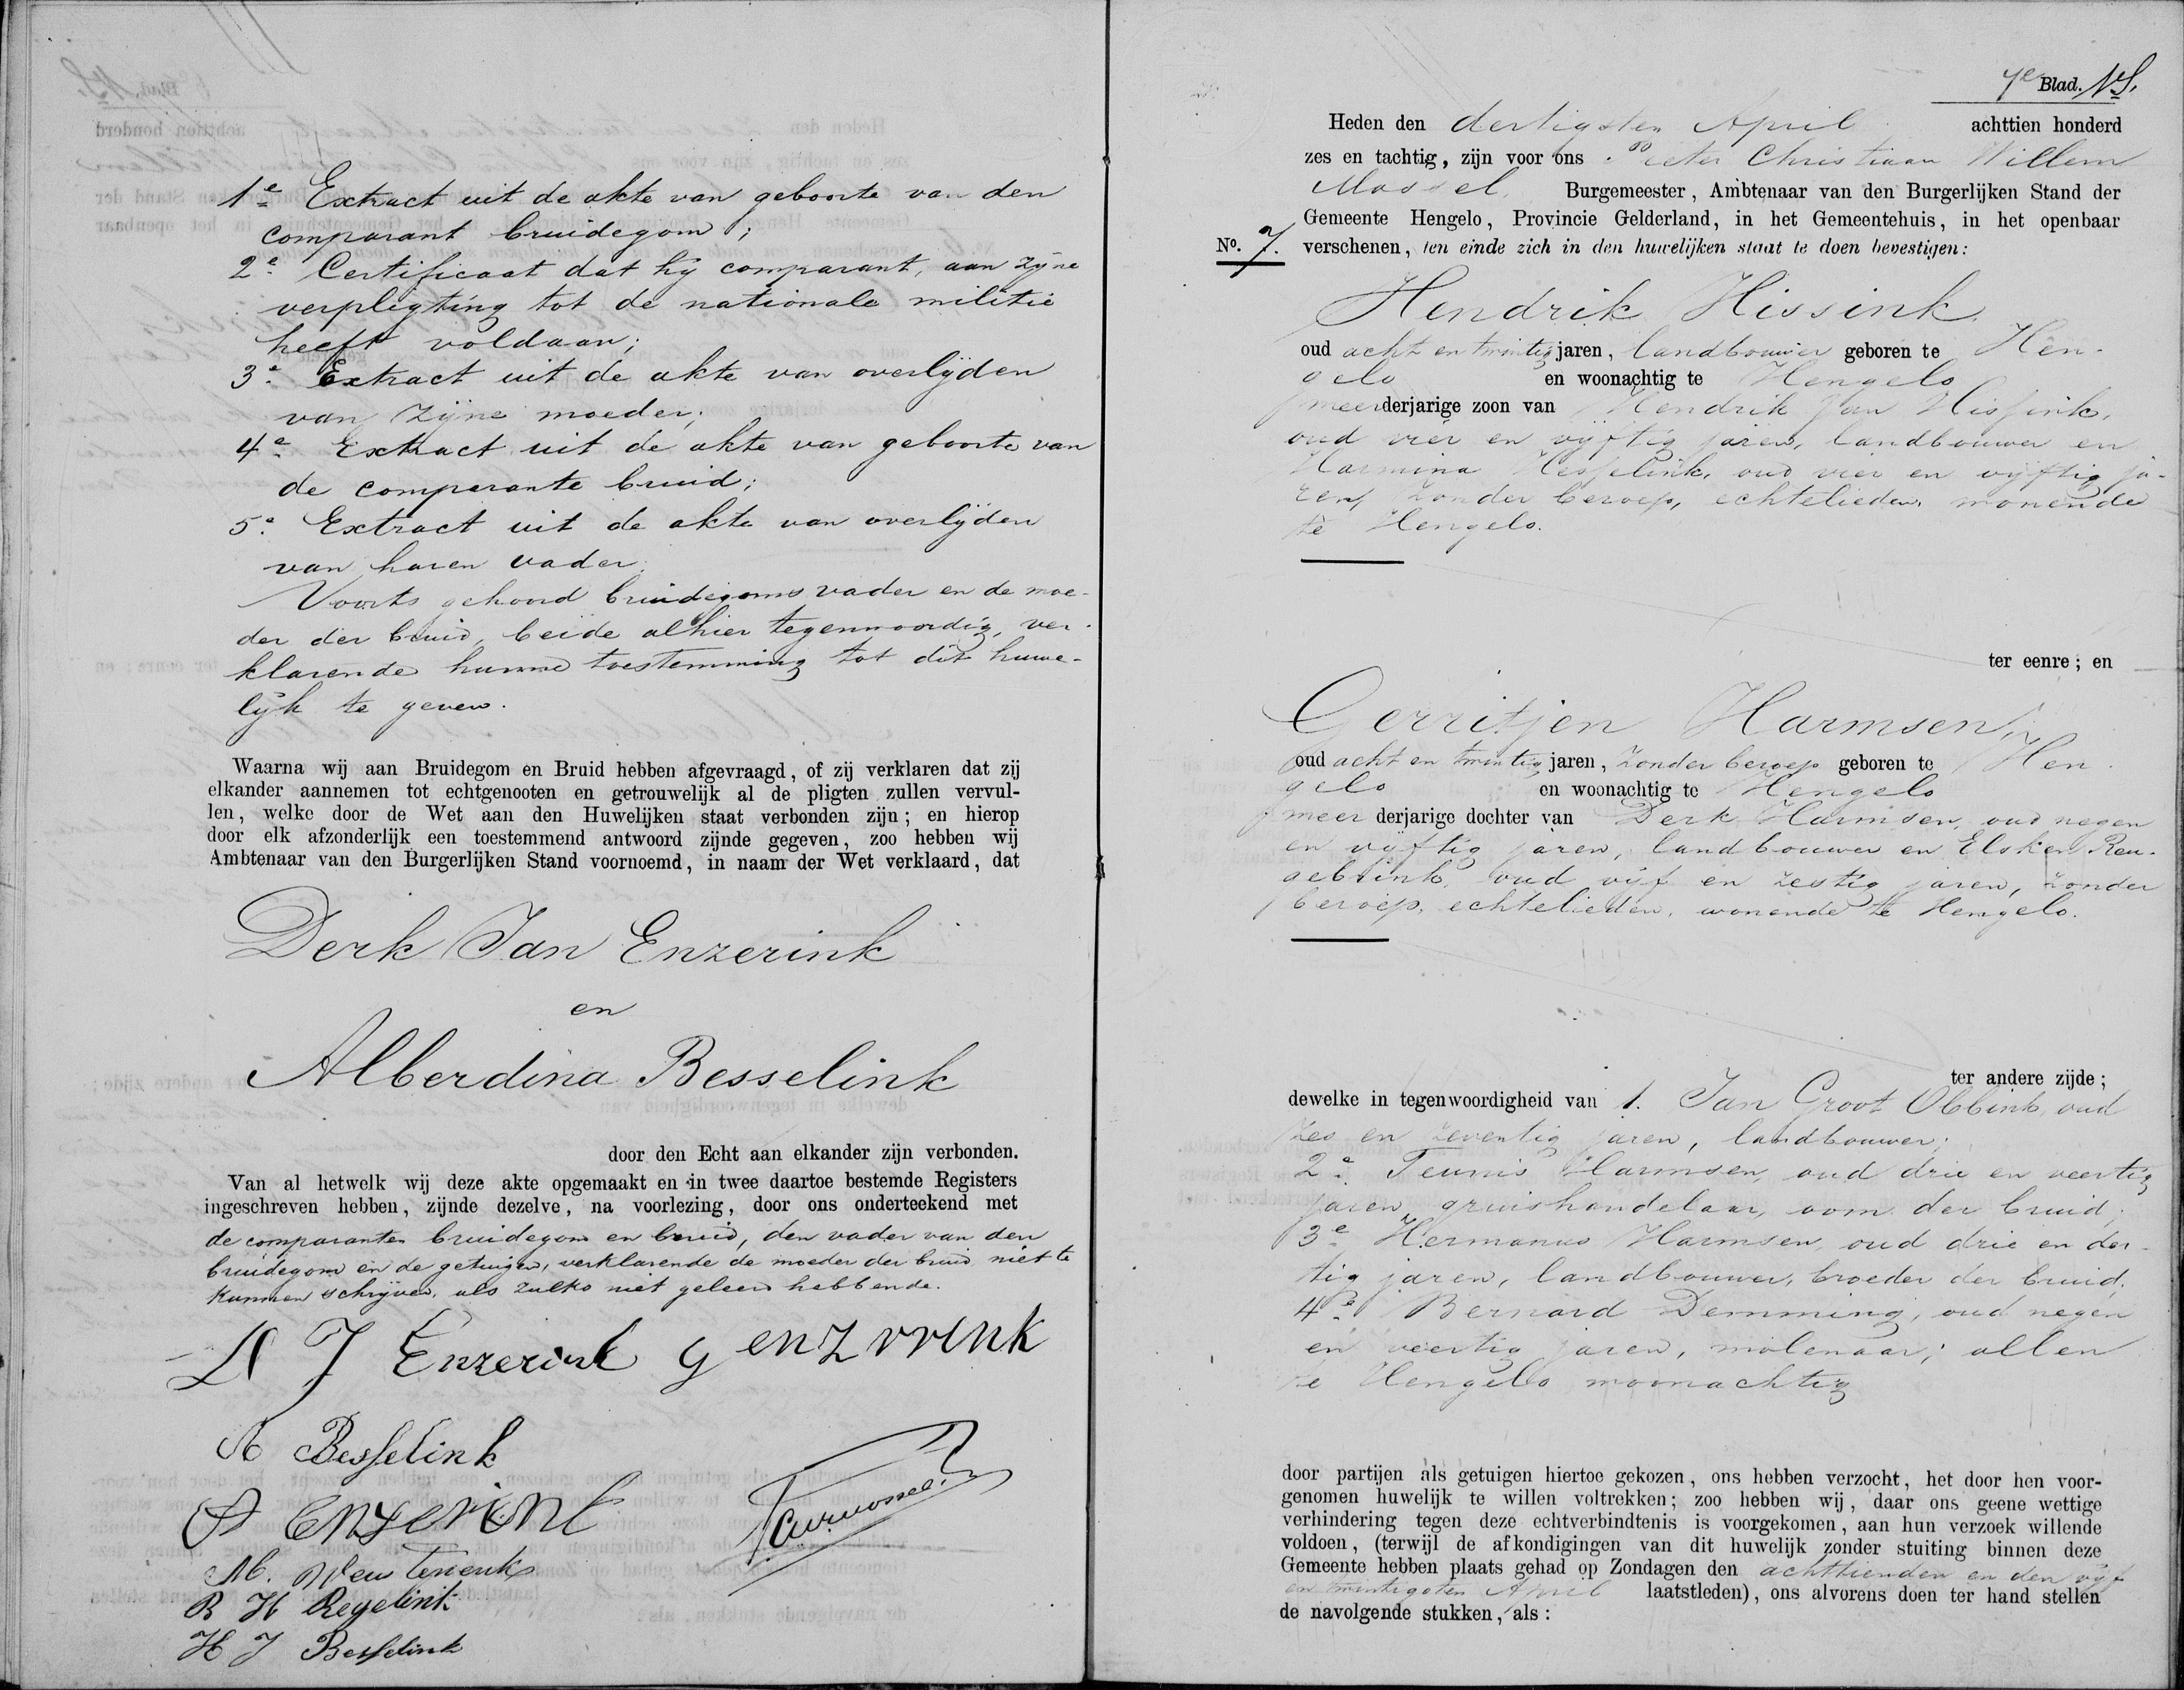 1e Extract uit de akte van geboorte van den
comparant bruidegom;
2e Certificaat dat hij comparant, aan zijne
verpligting tot de nationale militie
heeft voldaan;
3e Extract uit de akte van overlijden
van zijne moeder;
4e Extract uit de akte van geboorte van
de comparante bruid;
5e Extract uit de akte van overlijden
van haren vader.
Voorts gehoord bruidegoms vader en de moe-
der der bruid, beide alhier tegenwoordig, ver-
klarende hunne toestemming tot dit huwe-
lijk te geven.
Waarna wij aan Bruidegom en Bruid hebben afgevraagd, of zij verklaren dat zij
elkander aannemen tot echtgenooten en getrouwelijk al de pligten zullen vervul-
len, welke door de Wet aan den Huwelijken staat verbonden zijn; en hierop
door elk afzonderlijk een toestemmend antwoord zijnde gegeven, zoo hebben wij
Ambtenaar van den Burgerlijken Stand voornoemd, in naam der Wet verklaard, dat
Derk Jan Enzerink
en
Alberdina Besselink
door den Echt aan elkander zijn verbonden.
Van al hetwelk wij deze akte opgemaakt en in twee daartoe bestemde Registers
ingeschreven hebben, zijnde dezelve, na voorlezing, door ons onderteekend met
de comparanten bruidegom en bruid, den vader van den
bruidegom en de getuigen, verklarende de moeder der bruid niet te
kunnen schrijven, als zulks niet geleerd hebbende.
D J Enzerink G enzerink
A Besselink
Enzerink
B H Regelink
H J Besselink
7e Blad.
Heden den dertigsten April achttien honderd
zes en tachtig, zijn voor ons Pieter Christiaan Willem
Mossel, Burgemeester, Ambtenaar van den Burgerlijken Stand der
Gemeente Hengelo, Provincie Gelderland, in het Gemeentehuis, in het openbaar
No. 7. verschenen, ten einde zich in den huwelijken staat te doen bevestigen:
Hendrik Hissink,
oud acht en twintig jaren, landbouwer geboren te Hen-
gelo en woonachtig te Hengelo
meerderjarige zoon van Hendrik Jan Hissink,
oud vier en vijftig jaren, landbouwer en
Harmina Hesselink, oud vier en vijftig ja-
ren, zonder beroep, echtelieden, wonende
te Hengelo.
ter eenre; en
Gerritjen Harmsen,
oud acht en twintig jaren, zonder beroep geboren te Hen-
gelo en woonachtig te Hengelo
meer derjarige dochter van Derk Harmsen, oud negen
en vijftig jaren, landbouwer en Elsken Reu-
gebrink, oud vijf en zestig jaren, zonder
beroep, echtelieden, wonende te Hengelo.
ter andere zijde;
dewelke in tegenwoordigheid van 1. Jan Groot Obbink, oud
zes en zeventig jaren, landbouwer;
2e Teunis Harmsen, oud drie en veertig
jaren, gruishandelaar, oom der bruid;
3e Hermanus Harmsen, oud drie en der-
tig jaren, landbouwer, broeder der bruid;
4e Bernard Demming, oud negen
en veertig jaren, molenaar; allen
te Hengelo woonachtig
door partijen als getuigen hiertoe gekozen, ons hebben verzocht, het door hen voor-
genomen huwelijk te willen voltrekken; zoo hebben wij, daar ons geene wettige
verhindering tegen deze echtverbindtenis is voorgekomen, aan hun verzoek willende
voldoen, (terwijl de afkondigingen van dit huwelijk zonder stuiting binnen deze
Gemeente hebben plaats gehad op Zondagen den achttienden en den vijf
en twintigsten April laatstleden), ons alvorens doen ter hand stellen
de navolgende stukken, als: